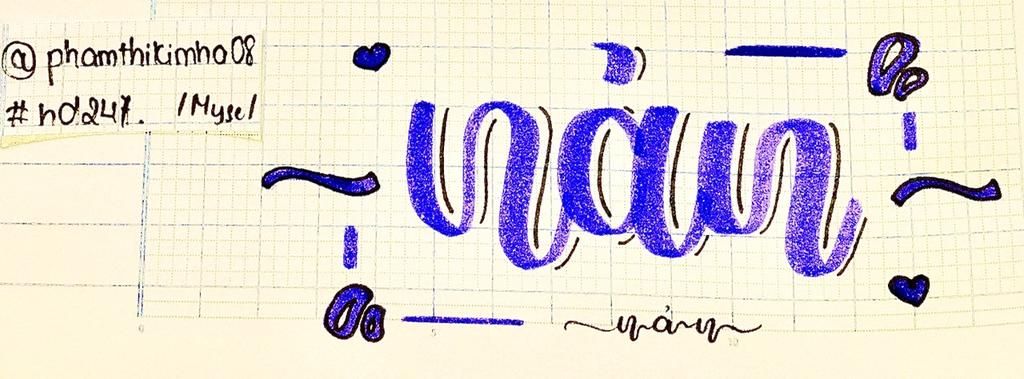 @phamthikimhoa08
#nd247. /Myse/
nản
~nản~